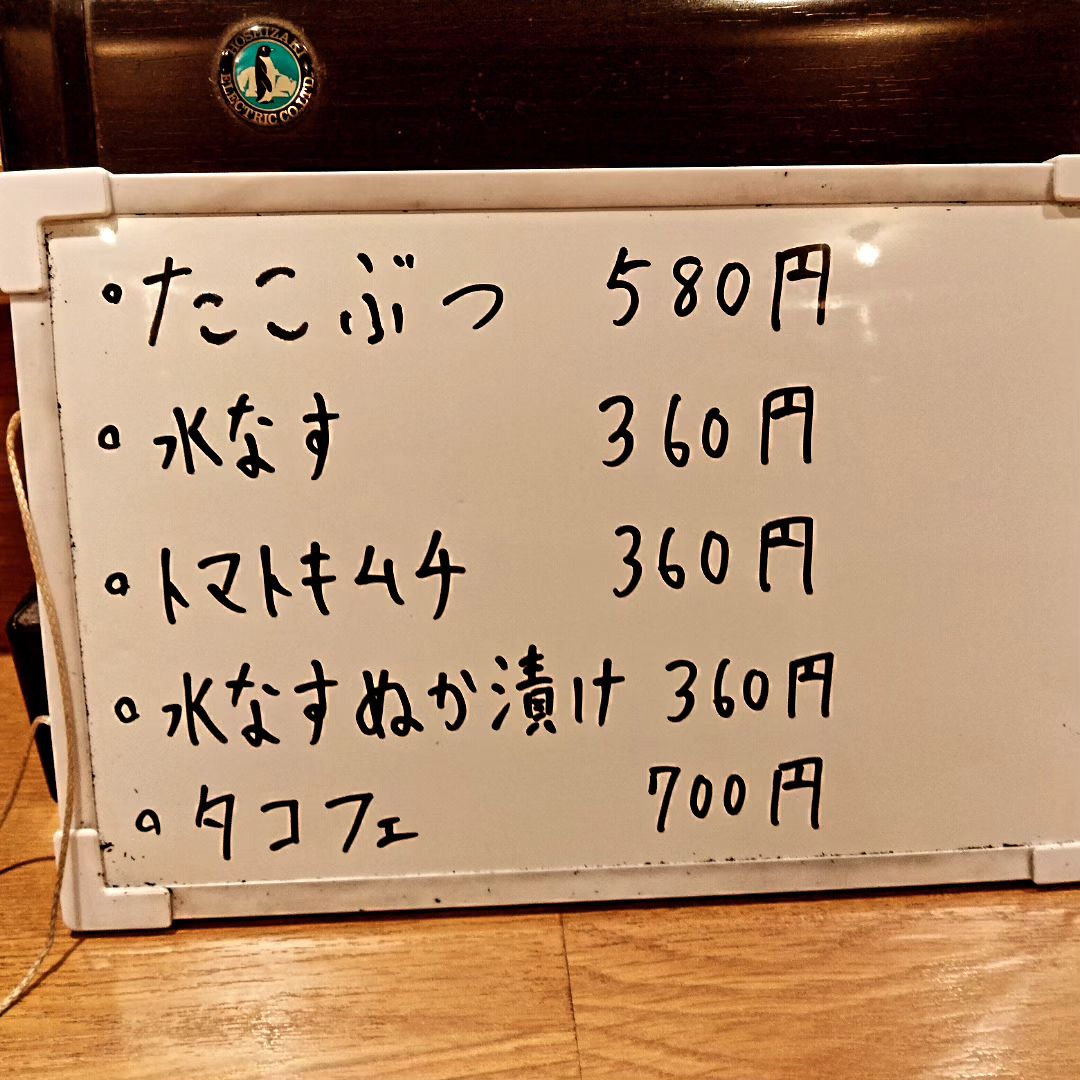 HOSHIZAKI
ELECTRIC CO.LTD.
たこぶつ 580円
水なす 360円
トマトキムチ 360円
水なすぬか漬け 360円
タコフェ 700円